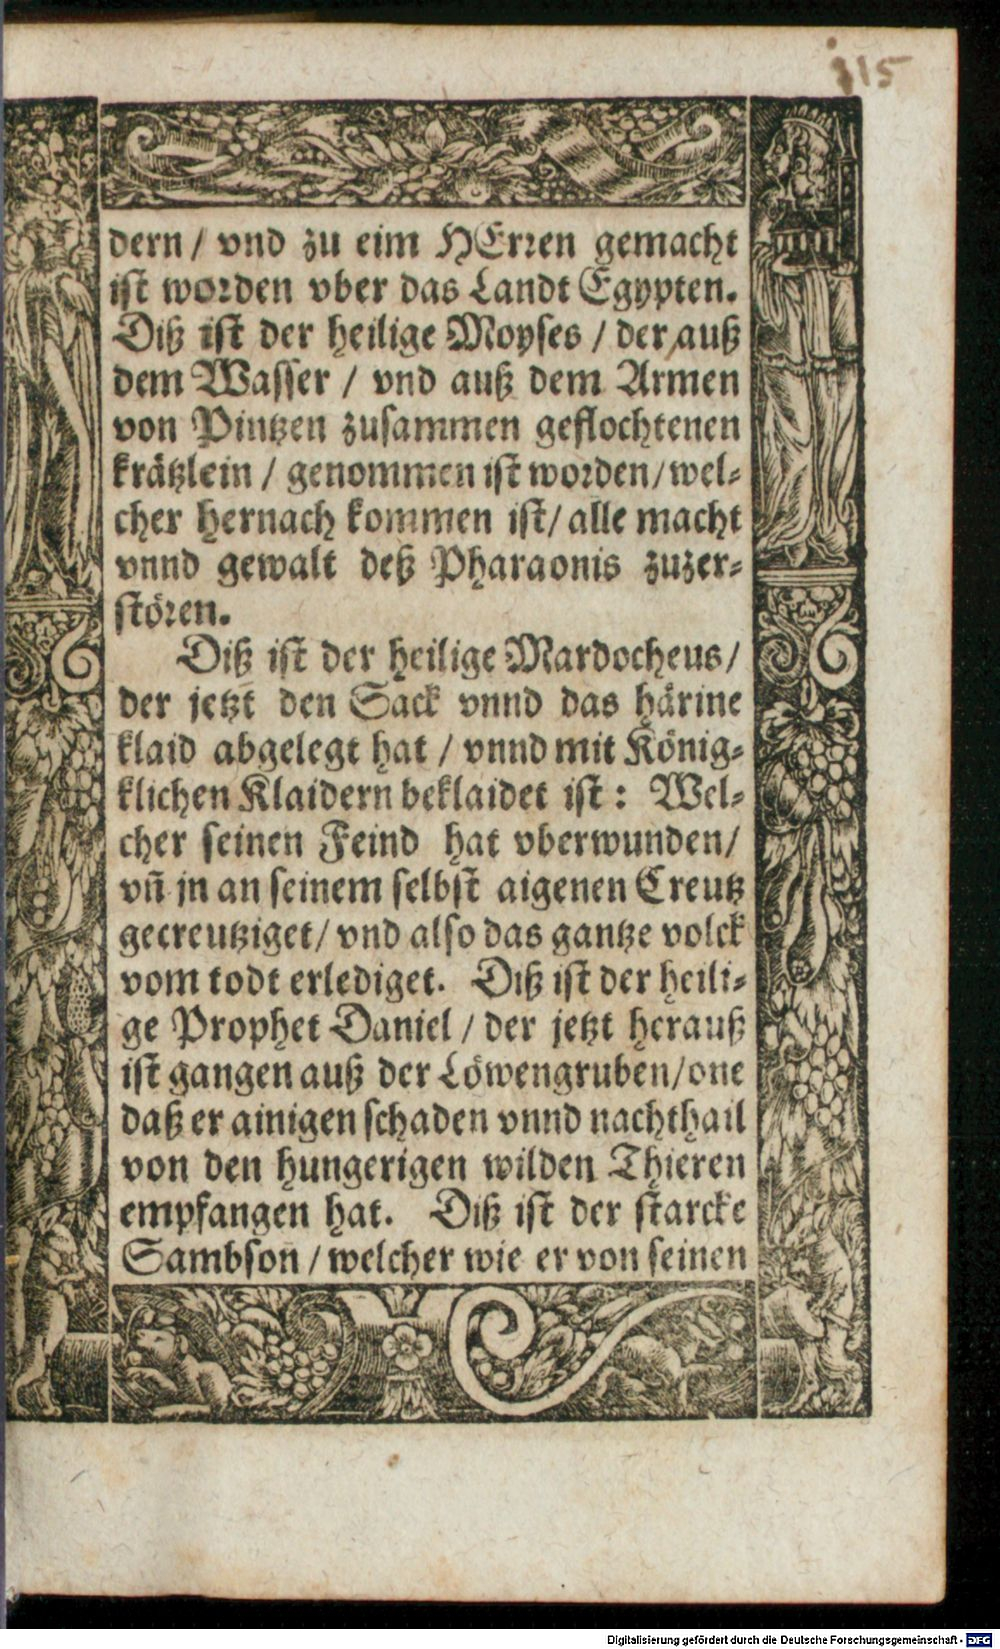 115
dern / vnd zu eim HErren gemacht
ist worden vber das Landt Egypten.
Diß ist der heilige Moyses / der auß
dem Wasser / vnd auß dem Armen
von Pintzen zusammen geflochtenen
krätzlein / genommen ist worden / wel-
cher hernach kommen ist / alle macht
vnnd gewalt deß Pharaonis zuzer-
stören.
Diß ist der heilige Mardocheus /
der jetzt den Sack vnnd das härine
klaid abgelegt hat / vnnd mit König-
klichen Klaidern beklaidet ist : Wel-
cher seinen Feind hat vberwunden /
vñ jn an seinem selbst aigenen Creutz
gecreutziget / vnd also das gantze volck
vom todt erlediget. Diß ist der heili-
ge Prophet Daniel / der jetzt herauß
ist gangen auß der Löwengruben / one
daß er ainigen schaden vnnd nachthail
von den hungerigen wilden Thieren
empfangen hat. Diß ist der starcke
Sambson / welcher wie er von seinen
Digitalisierung gefördert durch die Deutsche Forschungsgemeinschaft - DFG